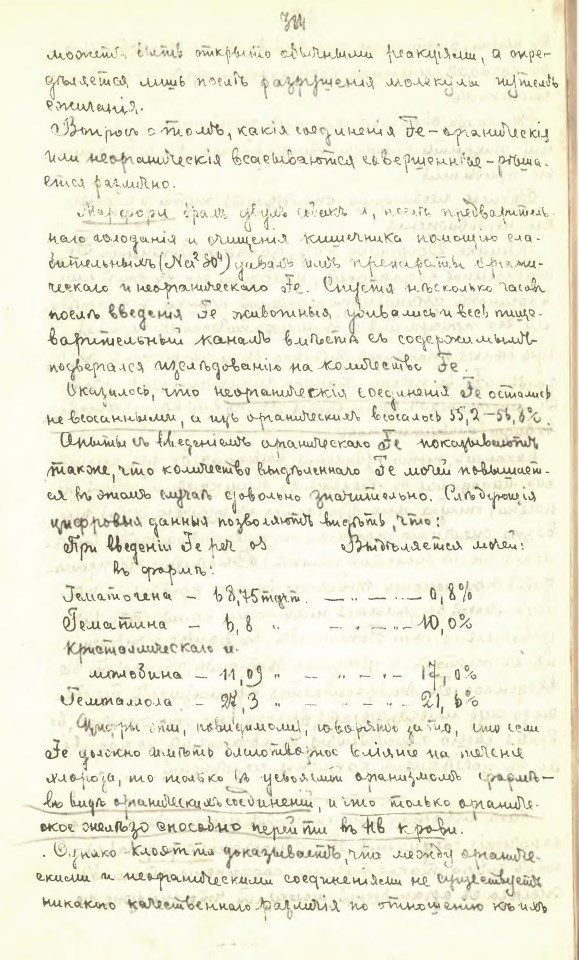 можетъ быть открыто обычными реакціями, а опре-
дѣляется лишь послѣ разрушенія молекулы путемъ
сжиганія.
Вопросъ о томъ, какія соединенія Fe - органическія
или неорганическія всасываются совершеннѣе - рѣша-
ется различно.
Марфори бралъ двухъ собакъ и, послѣ предваритель-
наго голоданія и очищенія кишечника помощію сла-
бительныхъ (Na² SO⁴) давалъ имъ препараты органи-
ческаго и неорганическаго Fe. Спустя нѣсколько часовъ
послѣ введенія Fe животныя убивались и весь пище-
варительный каналъ вмѣстѣ съ содержимымъ
подвергался изслѣдованію на количество Fe.
Оказалось, что неорганическія соединенія Fe остались
не всосанными, а изъ органическихъ всосалось 55,2-56,8%.
Опыты съ введеніемъ органическаго Fe показываютъ
также, что количество выдѣленнаго Fe мочей повышает-
ся въ этомъ случаѣ довольно значительно. Слѣдующія
цифровыя данныя позволяютъ видѣть, что:
При введеніи Fe per os Выдѣляется мочей:
въ формѣ:
Гематогена - 18,75 mgrm. - 0,8%
Гематина - 6,8 " - 10,0%
Кристаллическаго ге-
моглобина - 11,09 " - 17,0%
Гемоллола - 27,3 " - 21,6%
Цифры эти, повидимому, говорятъ за то, что если
Fe должно имѣть благотворное вліяніе на теченіе
хлороза, то только въ усвояемой организмомъ формѣ -
въ видѣ органическихъ соединеній, и что только органиче-
ское желѣзо способно перейти въ Hb крови.
Однако доказываетъ, что между органиче-
скими и неорганическими соединеніями не существуетъ
никакого качественнаго различія по отношенію къ ихъ